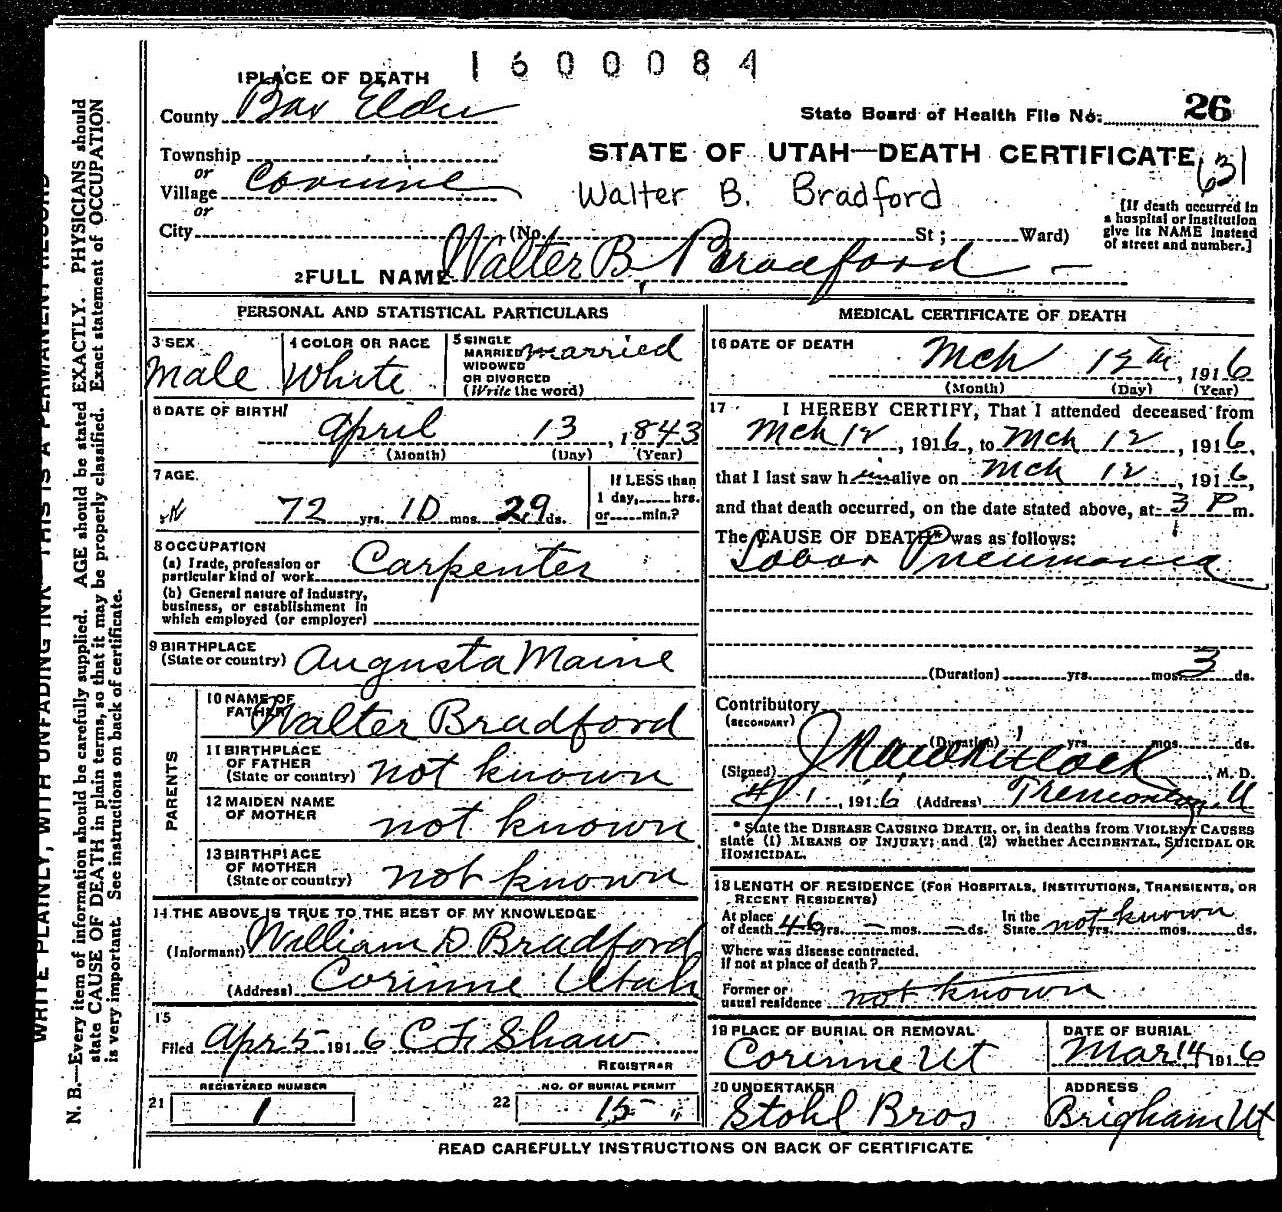 1600084
1 PLACE OF DEATH
County Box Elder
State Board of Health File No. 26
Township
STATE OF UTAH—DEATH CERTIFICATE
631
or
Village Corinne
Walter B. Bradford
or
City (No. St; Ward)
[If death occurred in a hospital or institution give its NAME instead of street and number.]
2 FULL NAME Walter B Bradford
PERSONAL AND STATISTICAL PARTICULARS
3 SEX Male
4 COLOR OR RACE White
5 SINGLE MARRIED WIDOWED OR DIVORCED (Write the word) married
6 DATE OF BIRTH April 13, 1843
(Month) (Day) (Year)
7 AGE.
72 yrs. 10 mos. 29 ds.
If LESS than 1 day, hrs. or min.?
8 OCCUPATION
(a) Trade, profession or particular kind of work Carpenter
(b) General nature of industry, business, or establishment in which employed (or employer)
9 BIRTHPLACE (State or country) Augusta Maine
PARENTS
10 NAME OF FATHER Walter Bradford
11 BIRTHPLACE OF FATHER (State or country) not known
12 MAIDEN NAME OF MOTHER not known
13 BIRTHPLACE OF MOTHER (State or country) not known
14 THE ABOVE IS TRUE TO THE BEST OF MY KNOWLEDGE
(Informant) William D Bradford
(Address) Corinne Utah
15
Filed Apr 5 1916 C F Shaw
REGISTRAR
REGISTERED NUMBER
21 1
NO. OF BURIAL PERMIT
22 15
MEDICAL CERTIFICATE OF DEATH
16 DATE OF DEATH Mch 12th, 1916
(Month) (Day) (Year)
17 I HEREBY CERTIFY, That I attended deceased from
Mch 12, 1916, to Mch 12, 1916,
that I last saw him alive on Mch 12, 1916,
and that death occurred, on the date stated above, at 3 P m.
The CAUSE OF DEATH* was as follows:
Lobar Pneumonia
(Duration) yrs. mos. 3 ds.
Contributory
(SECONDARY)
(Duration) yrs. mos. ds.
(Signed) Whitlock, M. D.
4/1, 1916 (Address) Tremonton, U
* State the DISEASE CAUSING DEATH, or, in deaths from VIOLENT CAUSES
state (1) MEANS OF INJURY; and (2) whether ACCIDENTAL, SUICIDAL OR
HOMICIDAL.
18 LENGTH OF RESIDENCE (FOR HOSPITALS, INSTITUTIONS, TRANSIENTS, OR
RECENT RESIDENTS)
At place of death 46 yrs. – mos. – ds. In the State not known yrs. mos. ds.
Where was disease contracted,
If not at place of death?
Former or usual residence not known
19 PLACE OF BURIAL OR REMOVAL Corinne Ut
DATE OF BURIAL Mar 14 1916
20 UNDERTAKER Stohl Bros
ADDRESS Brigham Ut
READ CAREFULLY INSTRUCTIONS ON BACK OF CERTIFICATE
WRITE PLAINLY, WITH UNFADING INK—THIS IS A PERMANENT RECORD
N. B.—Every item of information should be carefully supplied. AGE should be stated EXACTLY. PHYSICIANS should
state CAUSE OF DEATH in plain terms, so that it may be properly classified. Exact statement of OCCUPATION
is very important. See instructions on back of certificate.